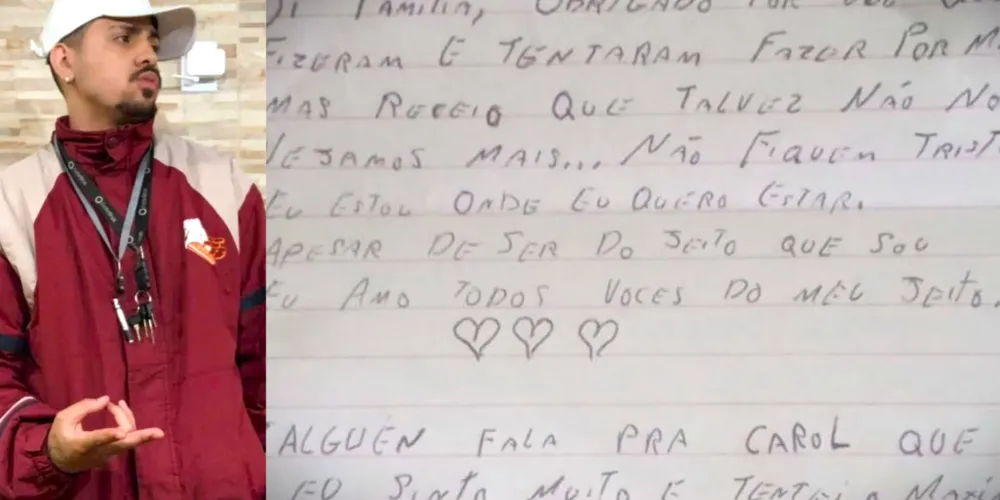 OI FAMILIA, OBRIGADO POR
FIZERAM E TENTARAM FAZER POR M
MAS RECEIO QUE TALVEZ NÃO NO
VEJAMOS MAIS... NÃO FIQUEM TRIST
EU ESTOU ONDE EU QUERO ESTAR.
APESAR DE SER DO JEITO QUE SOU
EU AMO TODOS VOCES DO MEU JEITO.
ALGUÉN FALA PRA CAROL QUE
EU SINTO MUITO E TENTEI